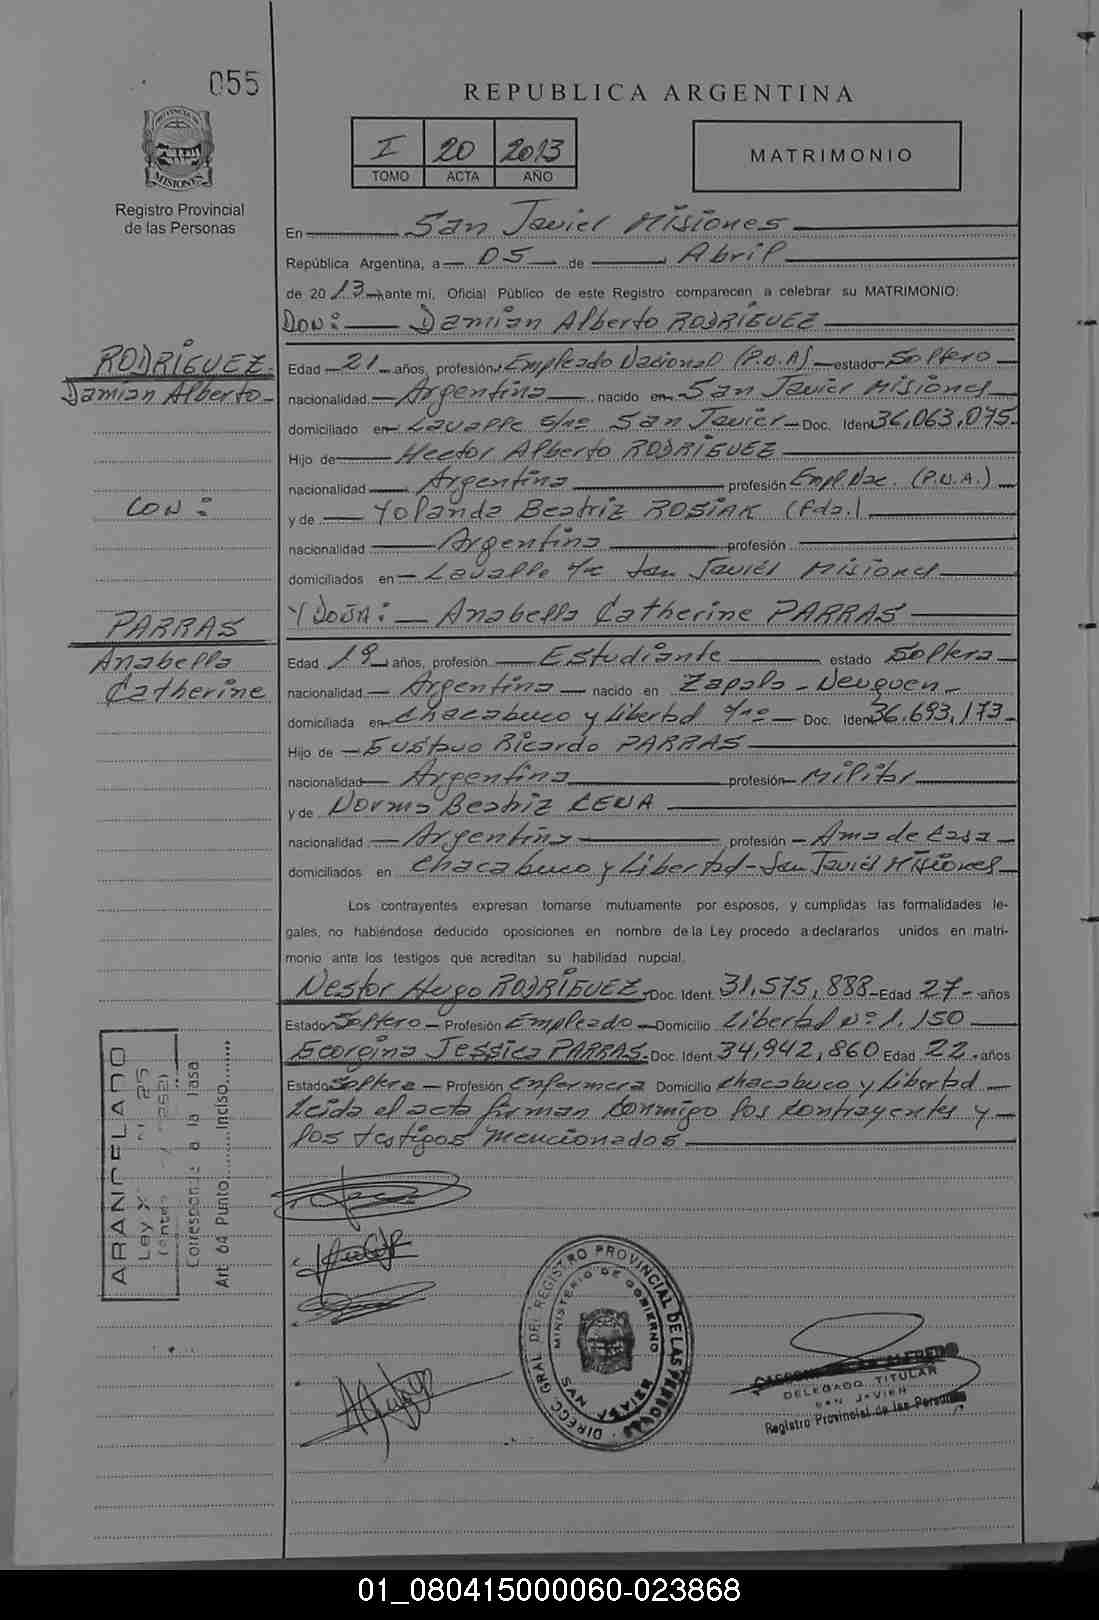 055
REPUBLICA ARGENTINA
PROVINCIA DE
MISIONES
Registro Provincial
de las Personas
I 20 2013
TOMO ACTA AÑO
MATRIMONIO
En San Javier Misiones
República Argentina, a 05 de Abril
de 2013 ante mi, Oficial Público de este Registro comparecen a celebrar su MATRIMONIO:
DON: Damián Alberto RODRÍGUEZ
RODRÍGUEZ
Damián Alberto
Edad 21 años, profesión Empleado Nacional (P.N.A) estado Soltero
nacionalidad Argentina nacido en San Javier Misiones
domiciliado en Lavalle s/nº San Javier Doc. Ident 36,063,075
Hijo de Hector Alberto RODRÍGUEZ
nacionalidad Argentina profesión Empl. Nac. (P.N.A.)
CON:
y de Yolanda Beatriz ROSIAK (Fda.)
nacionalidad Argentina profesión
domiciliados en Lavalle s/n San Javier Misiones
Y DOÑA: Anabella Catherine PARRAS
PARRAS
Anabella
Catherine
Edad 19 años, profesión Estudiante estado Soltera
nacionalidad Argentina nacido en Zapala - Neuquen
domiciliada en Chacabuco y Libertad s/nº Doc. Ident 36,693,173
Hijo de Gustavo Ricardo PARRAS
nacionalidad Argentina profesión Militar
y de Norma Beatriz CENA
nacionalidad Argentina profesión Ama de Casa
domiciliados en Chacabuco y Libertad - San Javier Misiones
Los contrayentes expresan tomarse mutuamente por esposos, y cumplidas las formalidades le-
gales, no habiéndose deducido oposiciones en nombre de la Ley procedo a declararlos unidos en matri-
monio ante los testigos que acreditan su habilidad nupcial.
Nestor Hugo RODRÍGUEZ Doc. Ident. 31,575,888 Edad 27 años
Estado Soltero Profesión Empleado Domicilio Libertad Nº 1.150
Georgina Jessica PARRAS Doc. Ident 34,942,860 Edad 22 años
Estado Soltera Profesión Enfermera Domicilio Chacabuco y Libertad
Leida el acta firman conmigo los contrayentes y
los testigos mencionados
ARANCELADO
Ley
Corresponde a la Tasa
Art. 64 Punto Inciso
DIRECC. GRAL. DEL REGISTRO PROVINCIAL DE LAS PERSONAS
MINISTERIO DE GOBIERNO
SAN JAVIER
ALFREDO
DELEGADO TITULAR
SAN JAVIER
Registro Provincial de las Personas
01_080415000060-023868